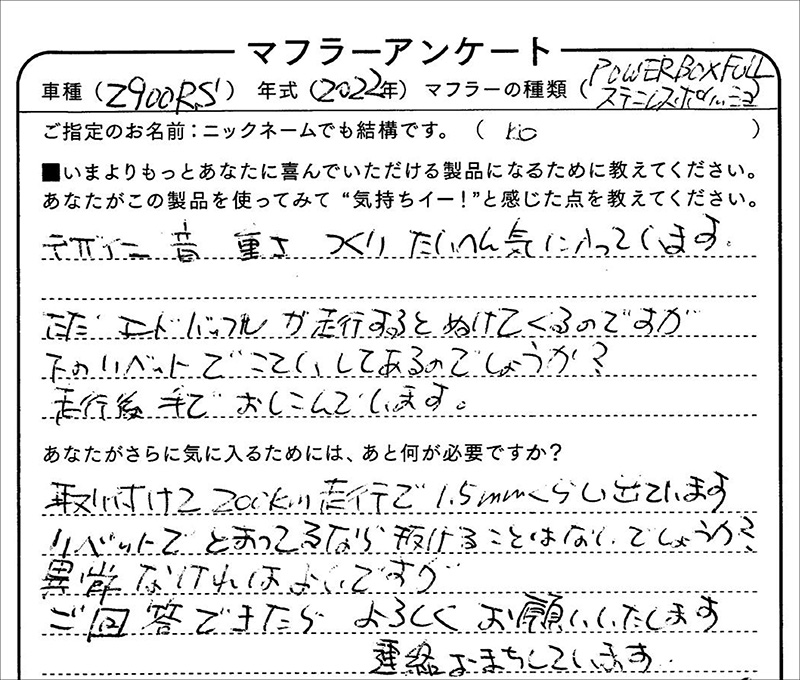 マフラーアンケート
車種（Z900RS）　年式（2022年）　マフラーの種類（POWERBOX FULL ステンレスポリッシュ
ご指定のお名前：ニックネームでも結構です。（　kio　）
■いまよりもっとあなたに喜んでいただける製品になるために教えてください。
あなたがこの製品を使ってみて“気持ちイー！”と感じた点を教えてください。
デザイン 音 重さ つくり たいへん気に入っています。
ただ エンドバッフルが走行するとぬけてくるのですが
下のリベットでこていしてあるのでしょうか？
走行後 手で おしこんでいます。
あなたがさらに気に入るためには、あと何が必要ですか？
取り付けて 200km走行で 1.5mmくらい出ています
リベットで とまってるなら 抜けることはないでしょうか？
異常なければよいですが
ご回答できたら よろしく お願いいたします
連絡おまちしています